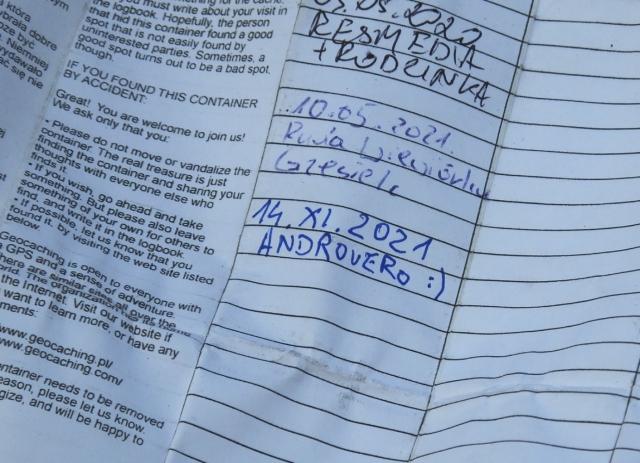 która
brała dobre
że być
Niemniej
rzydawało
ać się nie
you must write about your visit in
the logbook. Hopefully, the person
that hid this container found a good
spot that is not easily found by
uninterested parties. Sometimes, a
good spot turns out to be a bad spot,
though.
IF YOU FOUND THIS CONTAINER
BY ACCIDENT:
Great! You are welcome to join us!
We ask only that you:
• Please do not move or vandalize the
container. The real treasure is just
finding the container and sharing your
thoughts with everyone else who
finds it.
• If you wish, go ahead and take
something. But please also leave
something of your own for others to
find, and write it in the logbook.
• If possible, let us know that you
found it, by visiting the web site listed
below.
Geocaching is open to everyone with
GPS and a sense of adventure.
here are similar sites all over the
orld. The organization has its
the Internet. Visit our website if
want to learn more, or have any
ments:
www.geocaching.pl/
www.geocaching.com/
ntainer needs to be removed
eason, please let us know.
gize, and will be happy to
05.2020
RESMEDIA
+ RODZINKA
10.05.2021.
14. XI. 2021
ANDROVERO :)